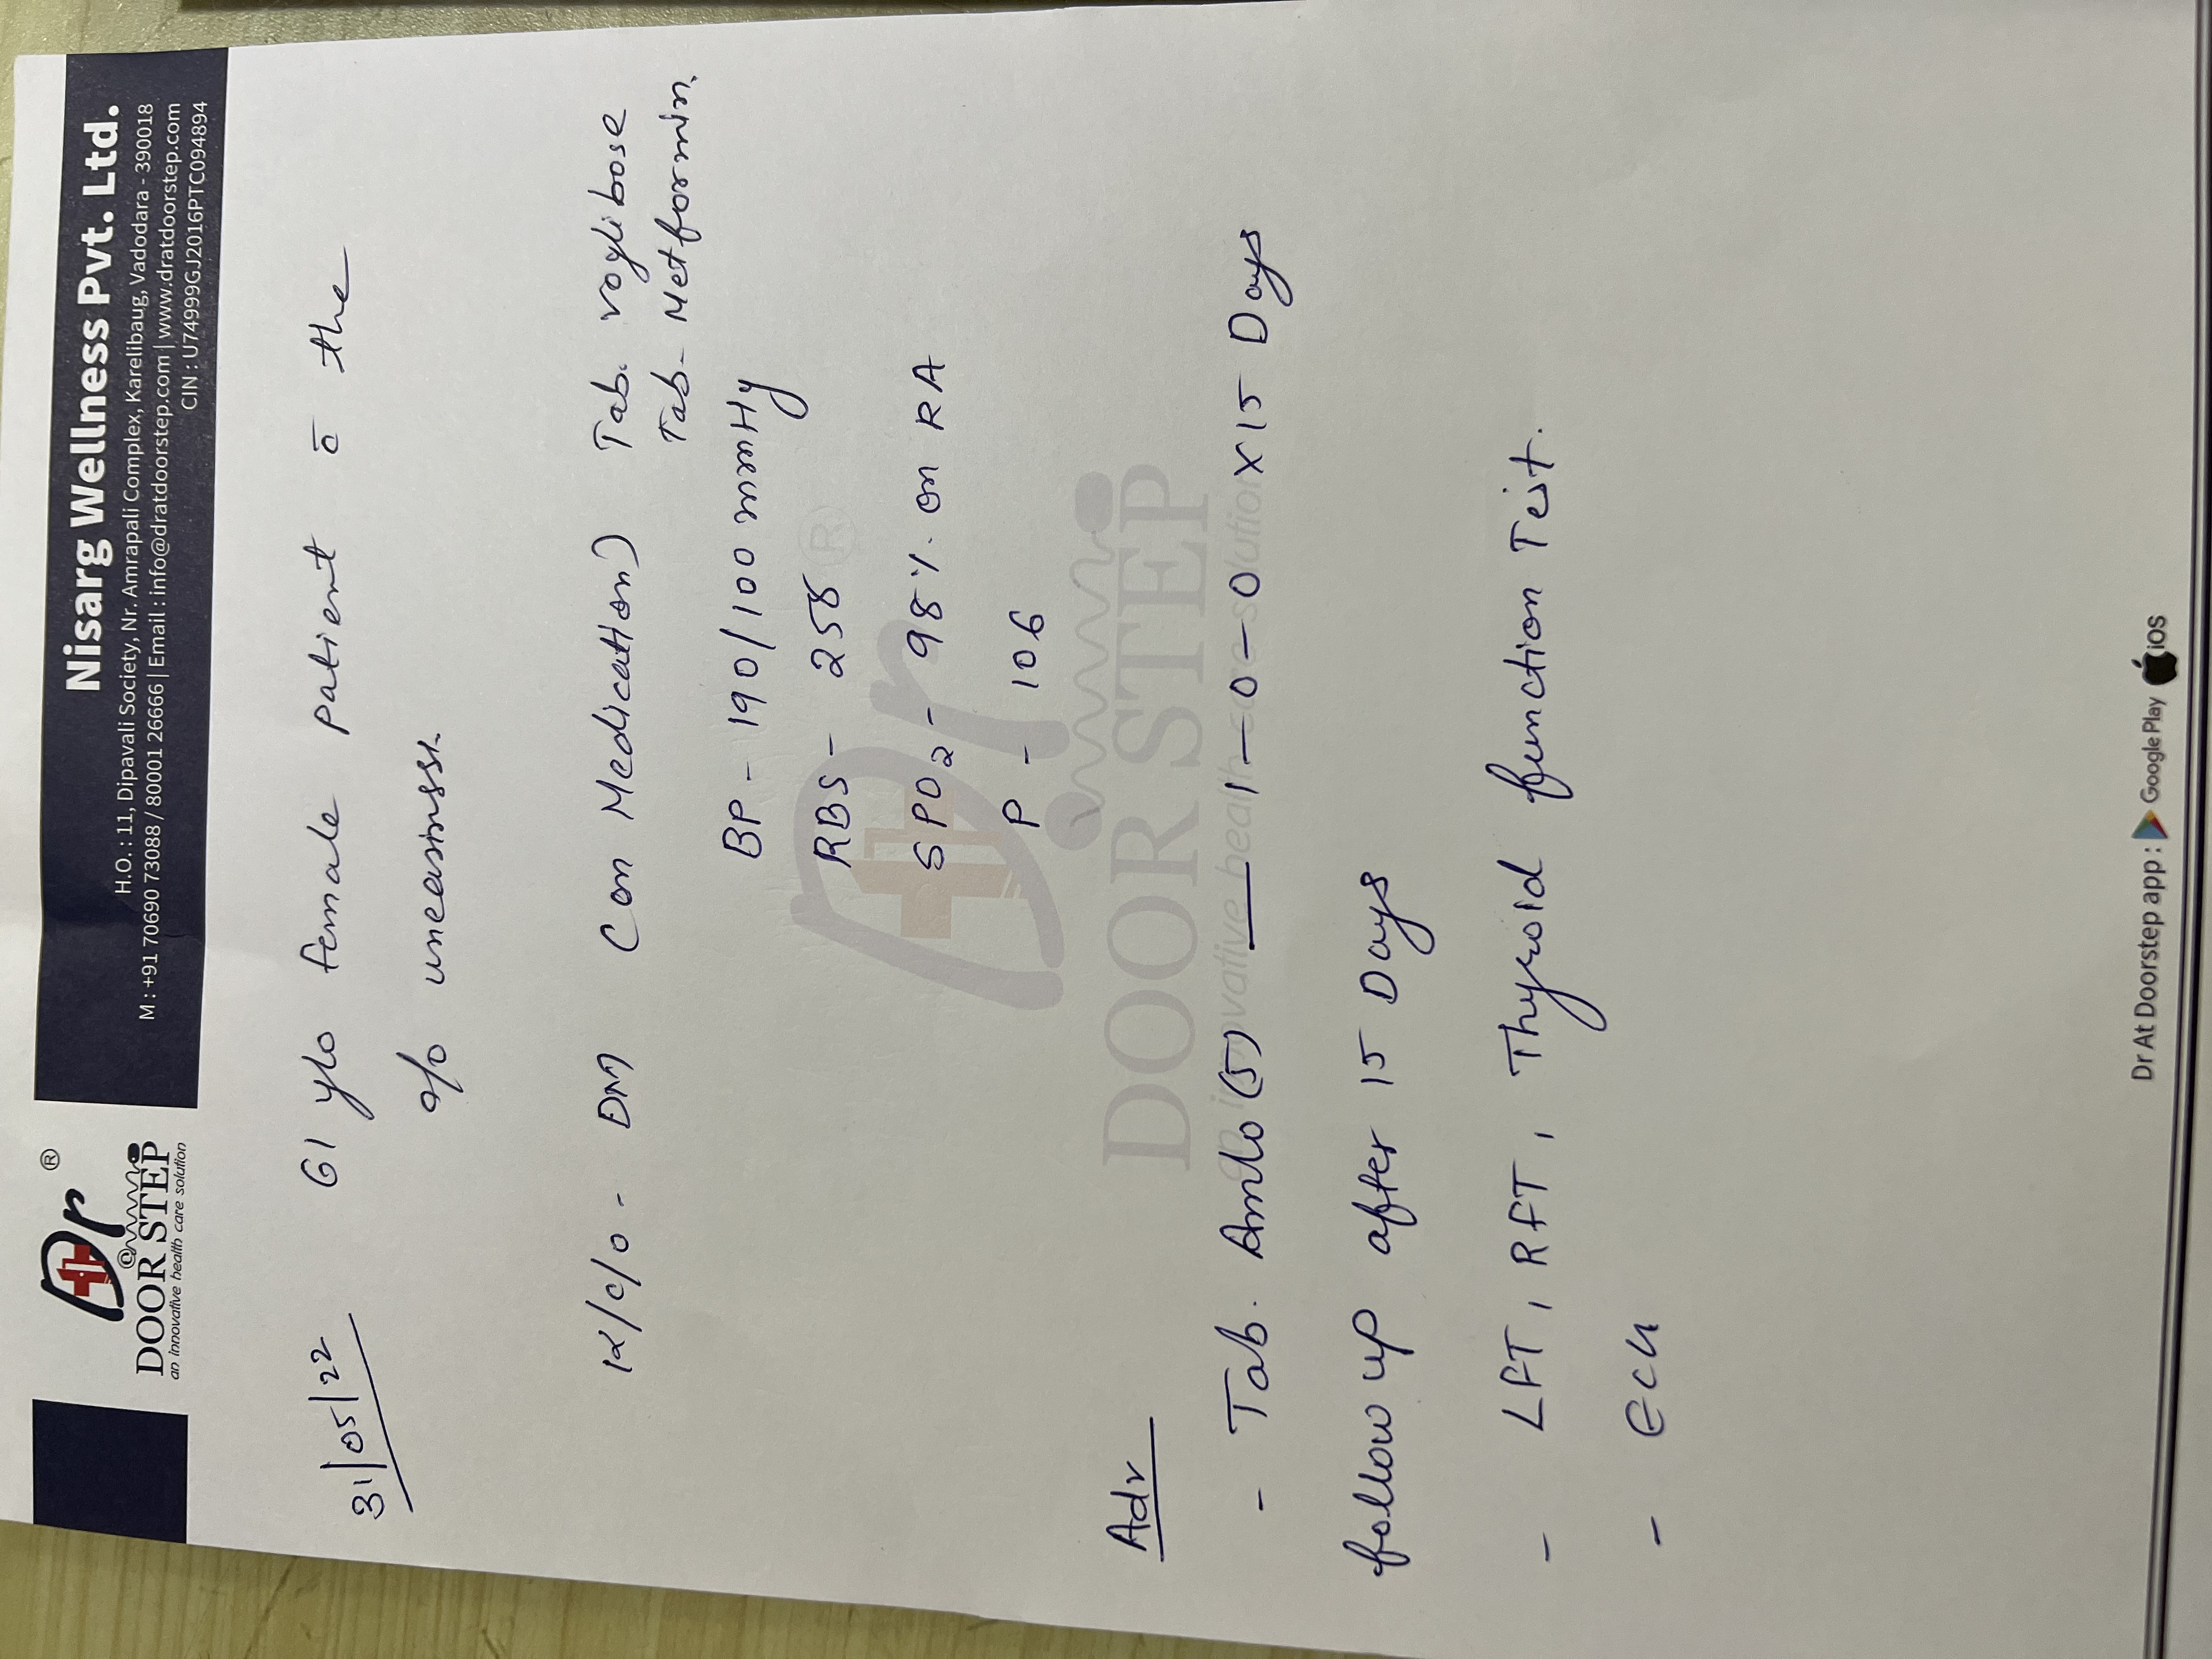 Dr ®
@
DOOR STEP
an innovative health care solution
Nisarg Wellness Pvt. Ltd.
H.O. : 11, Dipavali Society, Nr. Amrapali Complex, Karelibaug, Vadodara - 390018
M : +91 70690 73088 / 80001 26666 | Email : info@dratdoorstep.com | www.dratdoorstep.com
CIN : U74999GJ2016PTC094894
31/05/22 61 y/o female patient c̄ the
c/o uneasinsss.
K/c/o - DM (on Medication) Tab. voglibose
Tab- Metformin.
BP - 190/100 mmHg
RBS - 258
SPO2 - 98% on RA
P - 106
Dr ®
DOOR STEP
an innovative health care solution
Adv
- Tab. Amlo (5) — 1-0-0 x 15 Days
follow up after 15 Days
- LFT, RFT, Thyroid function Test.
- ECG
Dr At Doorstep app : Google Play iOS